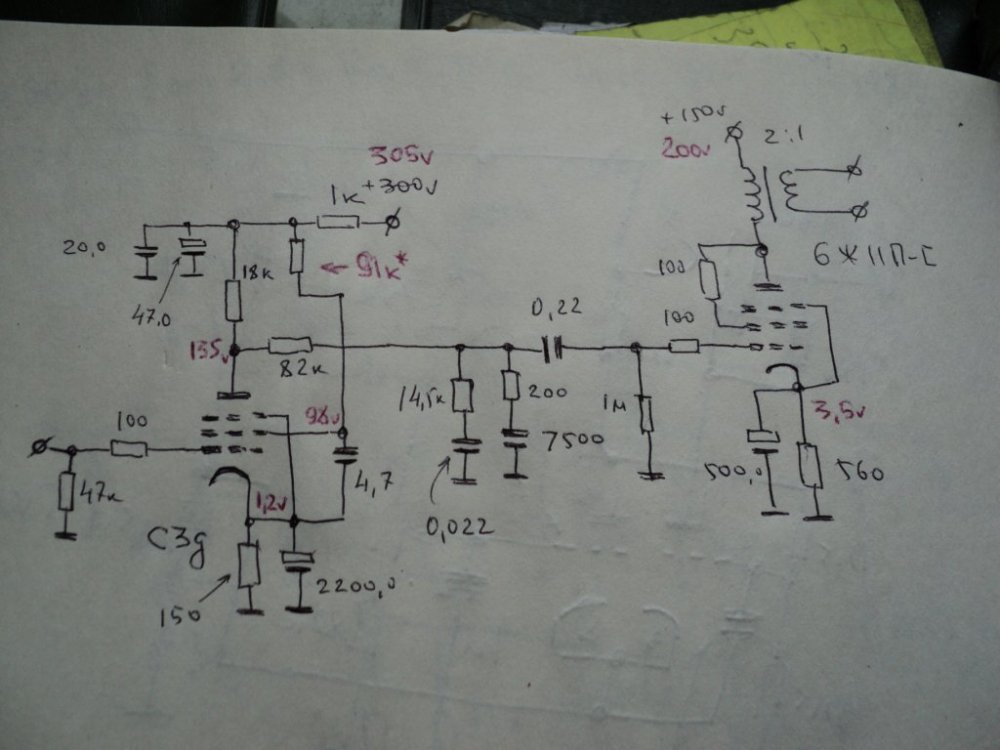 +150v
200v
2:1
305v
+300v
1к
20,0
47,0
18к
← 91к*
100
6Ж11П-Е
0,22
100
135v
82к
14,5к
200
1м
98v
3,5v
100
7500
4,7
47к
1,2v
500,0
560
0,022
C3g
2200,0
150